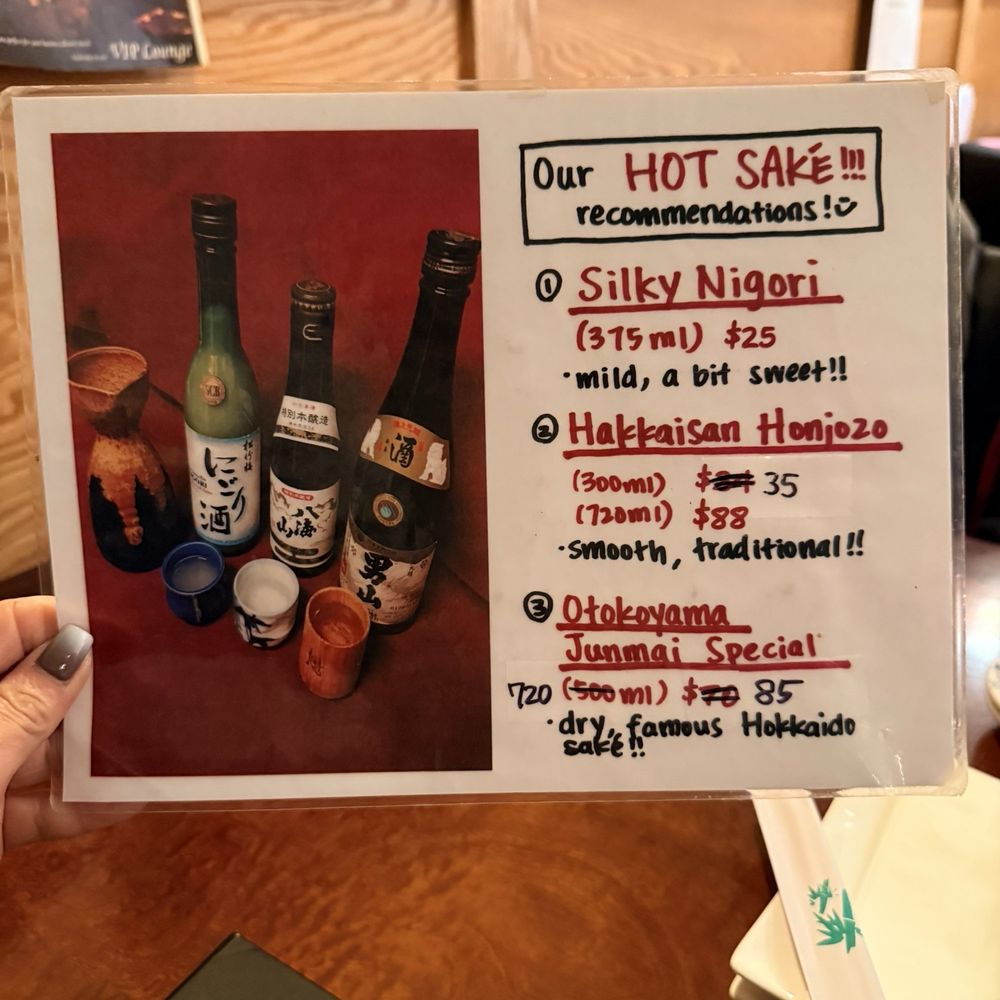 VIP Lounge
Our HOT SAKÉ!!!
recommendations!
① Silky Nigori
(375ml) $25
·mild, a bit sweet!!
② Hakkaisan Honjozo
(300ml) 35
(720ml) $88
·smooth, traditional!!
③ Otokoyama
Junmai Special
720 (500ml) $70 85
·dry, famous Hokkaido
saké!!
松竹梅
にごり
酒
SCB
特別本醸造
八海
山
酒
男
山